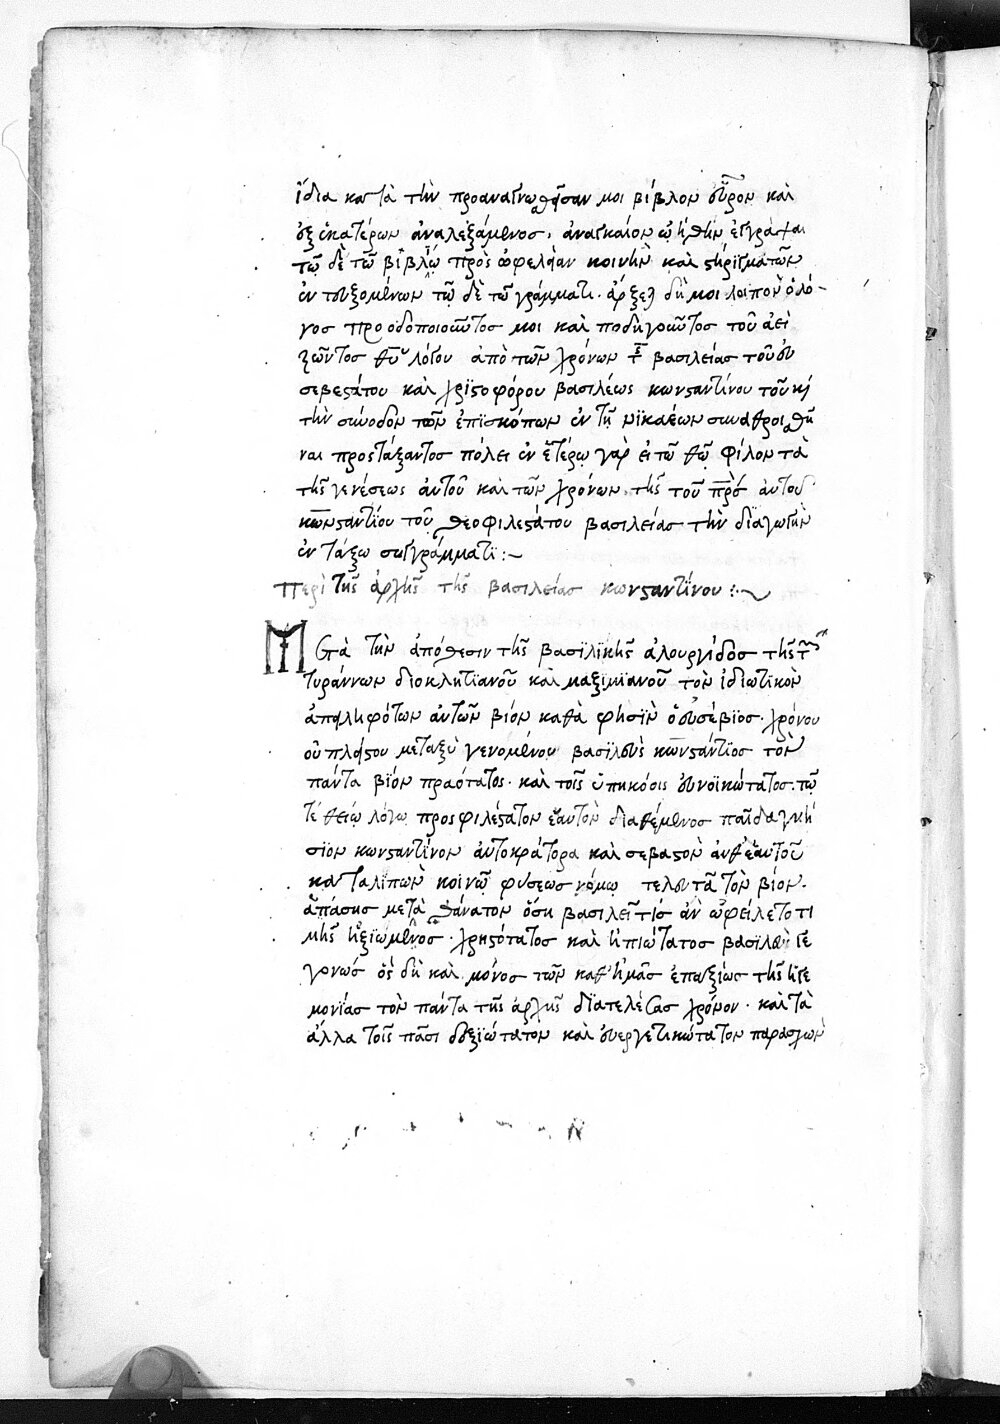 ἰδία κατὰ τὴν προαναγνωσθεῖσαν μοι βίβλον εὗρον καὶ
ἐξ ἑκατέρων ἀναλεξάμενος, ἀναγκαῖον ᾠήθην ἐγγράψαι
τῷδε τῷ βιβλίῳ πρὸς ὠφέλειαν κοινὴν καὶ στηριγμὸν τῶν
ἐντευξομένων τῷδε τῷ γράμματι· ἄρξει δή μοι λοιπὸν ὁ λό-
γος προοδοποιοῦντος μοι καὶ ποδηγοῦντος τοῦ ἀεὶ
ζῶντος θυ λόγου ἀπὸ τῶν χρόνων τῆς βασιλείας τοῦ εὐ
σεβεστάτου καὶ χριστοφόρου βασιλέως κωνσταντίνου τοῦ κ
τὴν σύνοδον τῶν ἐπισκόπων ἐν τῇ νικαέων συναθροισθῆ
ναι προστάξαντος πόλει ἐν ἑτέρῳ γὰρ εἰ τῷ θῷ φίλον τὰ
τῆς γενέσεως αὐτοῦ καὶ τῶν χρόνων τῆς τοῦ πρς αὐτοῦ
κωνσταντίου τοῦ θεοφιλεστάτου βασιλείας τὴν διαγωγὴν
ἐντάξω συγγράμματι:~
Περὶ τῆς ἀρχῆς τῆς βασιλείας κωνσταντίνου:~
Μετὰ τὴν ἀπόθεσιν τῆς βασιλικῆς ἁλουργίδος τῆς τῶν
τυράννων διοκλητιανοῦ καὶ μαξιμιανοῦ τὸν ἰδιωτικὸν
ἀπειληφότων αὐτῶν βίον καθά φησιν ὁ εὐσέβιος· χρόνου
οὐ πλείστου μεταξὺ γενομένου βασιλεὺς κωνστάντιος τὸν
πάντα βίον πραότατος· καὶ τοῖς ὑπηκόοις εὐνοϊκώτατος· τῷ
τε θείῳ λόγῳ προσφιλέστατον ἑαυτὸν διαθέμενος παῖδα γνή
σιον κωνσταντῖνον αὐτοκράτορα καὶ σεβαστὸν ἀνθ' ἑαυτοῦ
καταλιπὼν κοινῷ φύσεως νόμῳ τελευτᾷ τὸν βίον·
ἁπάσης μετὰ θάνατον ὅση βασιλεῖ τίς ἂν ὠφείλετο τι
μῆς ἠξιωμένος· χρηστότατος καὶ ἠπιώτατος βασιλέων γε
γονώς ὃς δὴ καὶ μόνος τῶν καθ' ἡμᾶς ἐπαξίως τῆς ἡγε
μονίας τὸν πάντα τῆς ἀρχῆς διατελέσας χρόνον· καὶ τὰ
ἄλλα τοῖς πᾶσι δεξιώτατον καὶ εὐεργετικώτατον παρασχὼν